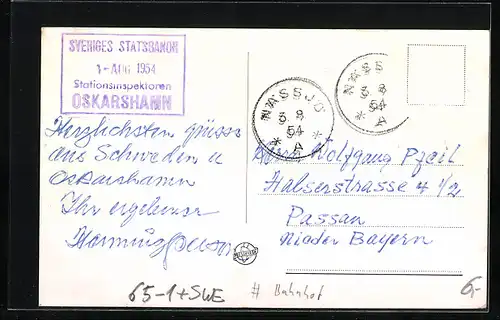 SVERIGES STATSBANOR
1-AUG 1954
Stationsinspektoren
OSKARSHAMN
NÄSSJÖ
3 8
54
* A *
NÄSS
3 8
54
* A
Herzlichsten grüsse
aus Schweden u
Oskarshamn
Ihr ergebener
Herrn Wolfgang Pfeil
Halserstrasse 4 1/2
Passau
Nieder Bayern
65-1+SWE
# Bahnhof
6,-